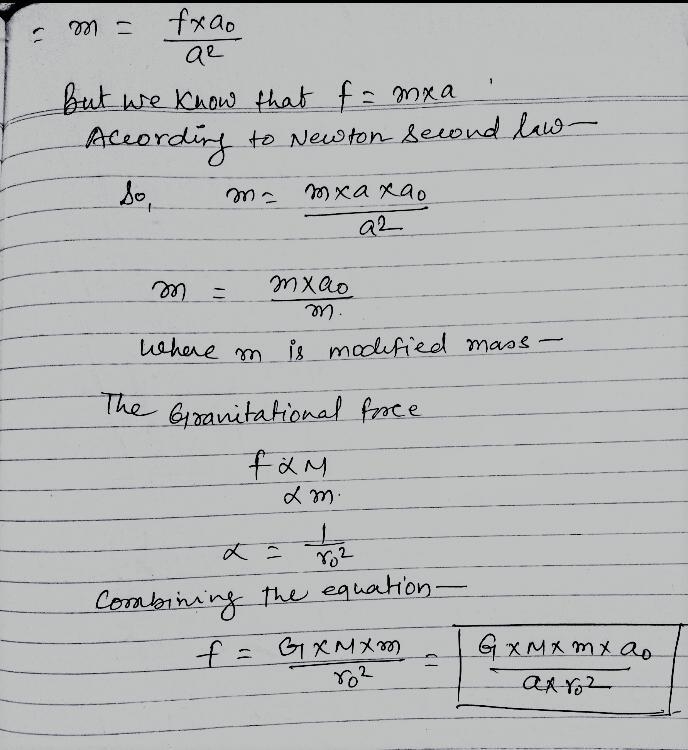 = m = f x a0 / a2
But we know that f = m x a
ACcording to Newton Second law —
So, m = m x a x a0 / a2
m = m x a0 / m.
Where m is modified mass —
The Gravitational force
f α M
α m.
α = 1 / r0 2
Combining the equation —
f = G x M x m / r0 2 = G x M x m x a0 / a x r0 2